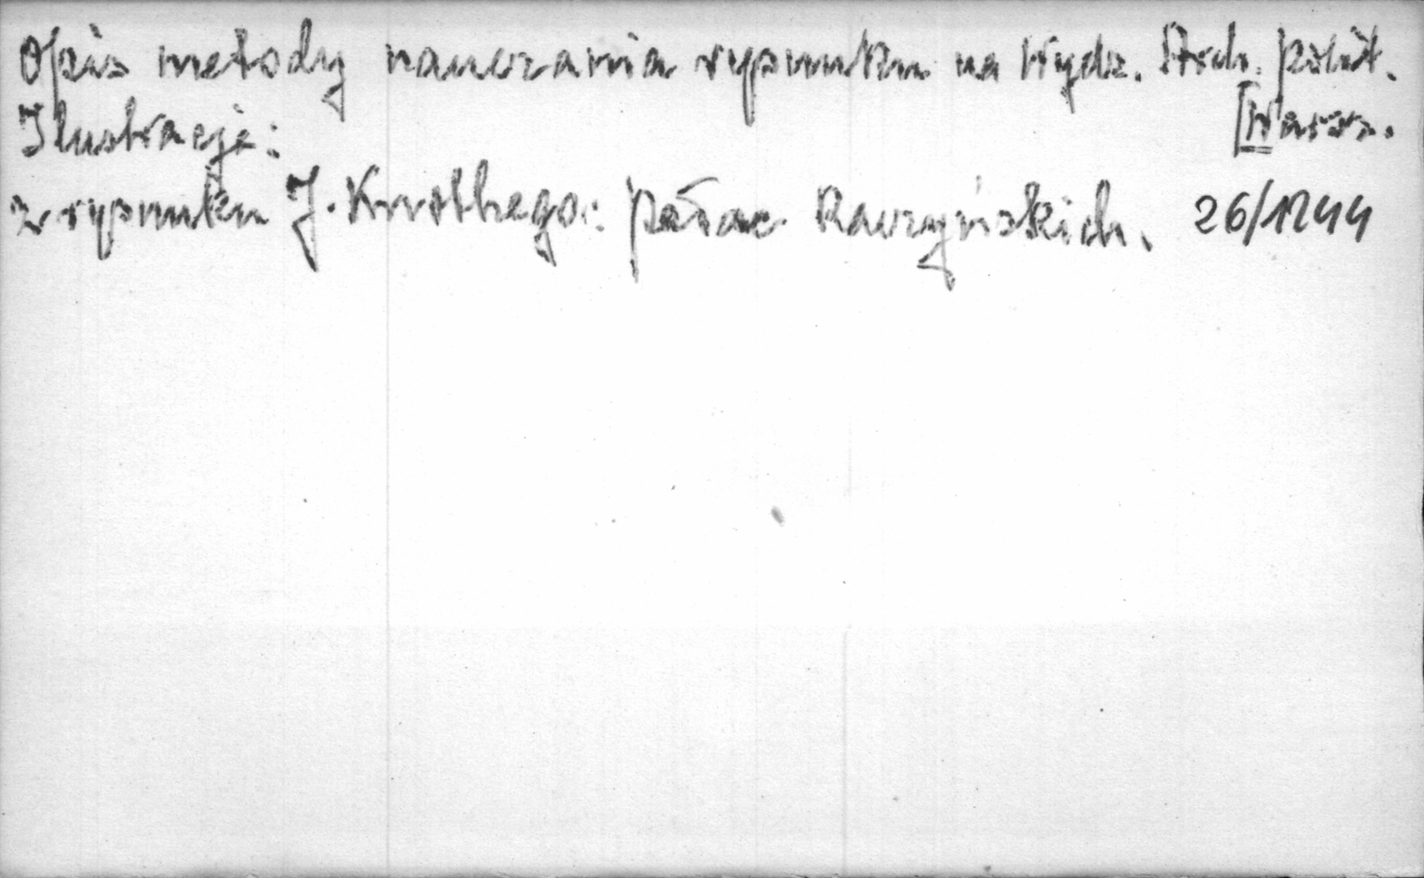 Opis metody nauczania rysunku na Wydz. Arch. Polit.
Ilustracje: [Warsz.
z rysunku J. Knothego: Pałac Raczyńskich. 26/1244